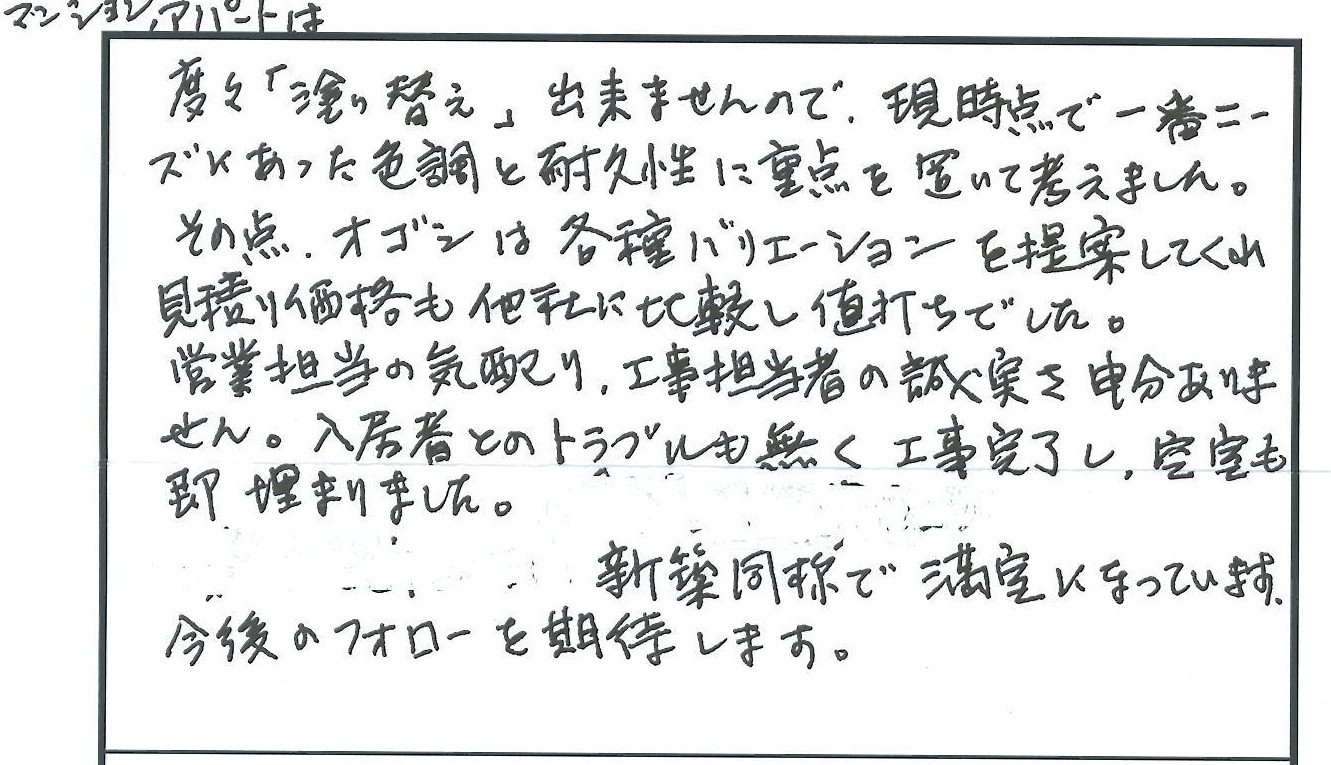 マンション、アパートは
度々「塗り替え」出来ませんので、現時点で一番ニー
ズにあった色調と耐久性に重点を置いて考えました。
その点、オゴシは各種バリエーションを提案してくれ
見積り価格も他社に比較し値打ちでした。
営業担当の気配り、工事担当者の誠実さ申分ありま
せん。入居者とのトラブルも無く工事完了し、空室も
即埋まりました。
新築同様で満室になっています。
今後のフォローを期待します。